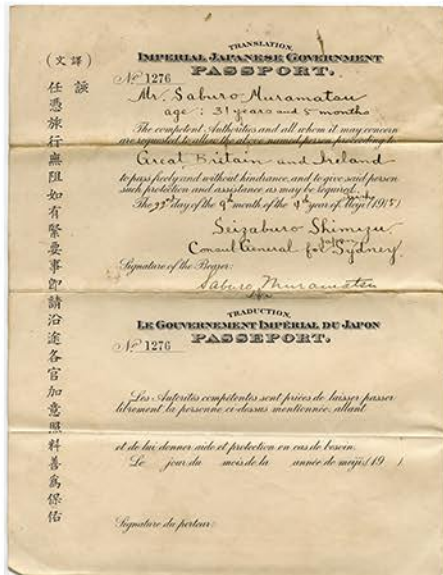 (文譯)
該
任憑旅行無阻如有緊要事即請沿途各官加意照料善為保佑
TRANSLATION.
IMPERIAL JAPANESE GOVERNMENT
PASSPORT.
No 1276
Mr. Saburo Muramatsu
age : 31 years and 5 months
The competent Authorities and all whom it may concern
are requested to allow the above named person proceeding to
Great Britain and Ireland
to pass freely and without hindrance, and to give said person
such protection and assistance as may be required.
The day of the 9th month of the 4th year of Meiji (1915)
Seizaburo Shimizu
Consul General for Japan Sydney
Signature of the Bearer:
Saburo Muramatsu
TRADUCTION.
LE GOUVERNEMENT IMPÉRIAL DU JAPON
PASSEPORT.
No 1276
Les Autorités compétentes sont priées de laisser passer
librement la personne ci-dessus mentionnée, allant
et de lui donner aide et protection en cas de besoin.
Le jour du mois de la année de meiji (19 )
Signature du porteur: